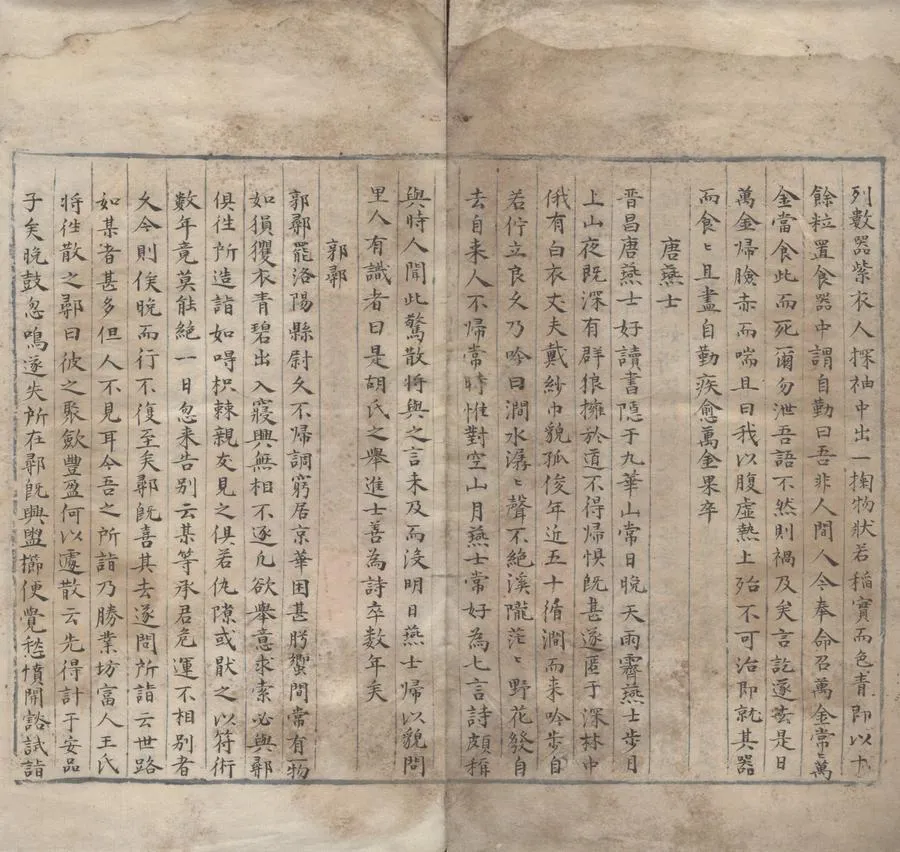 列數器紫衣人探袖中出一掬物狀若稻實而色青即以十
餘粒置食器中謂自勤曰吾非人間人今奉命召萬金常〻萬
金當食此而死爾勿泄吾語不然則禍及矣言訖遂去是日
萬金歸臉赤而喘且曰我以腹虛熱上殆不可治即就其器
而食〻且盡自勤疾愈萬金果卒
唐燕士
晉昌唐燕士好讀書隱于九華山常日晚天雨霽燕士步月
上山夜既深有群狼擁於道不得歸惧既甚遂匿于深林中
俄有白衣丈夫戴紗巾貌孤俊年近五十循澗而来吟步自
若佇立良久乃吟曰澗水潺〻聲不絕溪隴茫〻野花發自
去自来人不歸常時惟對空山月燕士常好為七言詩頗稱
與時人聞此驚散將與之言未及而沒明日燕士歸以貌問
里人有識者曰是胡氏之舉進士善為詩卒数年矣
郭鄩
郭鄩罷洛陽縣尉久不歸調窮居京華困甚肹蠁間常有一物
如損玃衣青碧出入寢興無相不逐凢欲舉意求索必與鄩
俱徃所造詣如㝵枳棘親友見之俱若仇隙或厭之以符術
數年竟莫能絕一日忽来告别云某等承君危運不相别者
久今則俟晚而行不復至矣鄩既喜其去遂問所詣云世路
如某者甚多但人不見耳今吾之所詣乃勝業坊富人王氏
將徃散之鄩曰彼之聚歛豐盈何以遽散云先得計于安品
子矣晚鼓忽鳴遂失所在鄩既興盥櫛便覺愁憤開豁試詣